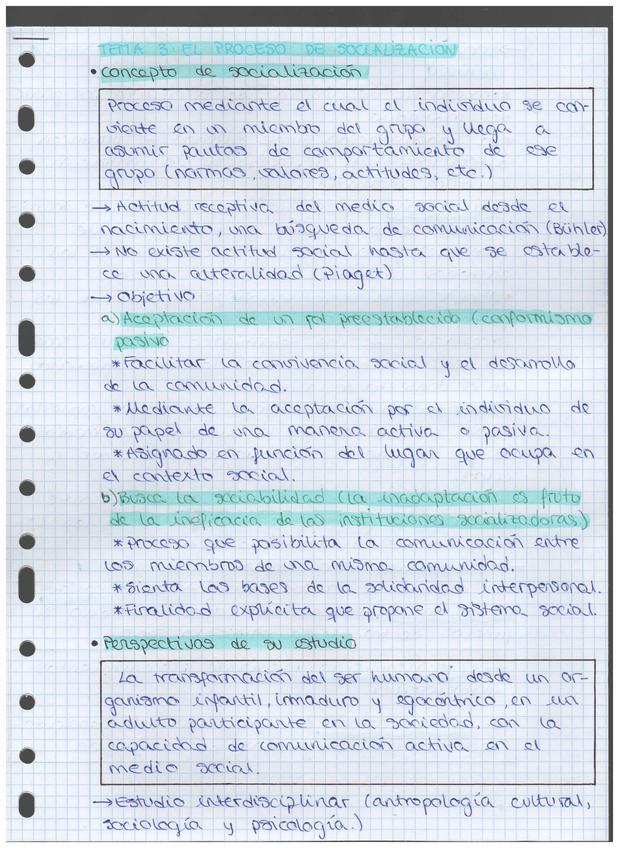 TEMA 3: EL PROCESO DE SOCIALIZACIÓN
• Concepto de socialización
Proceso mediante el cual el individuo se con-
vierte en un miembro del grupo y llega a
asumir pautas de comportamiento de ese
grupo (normas, valores, actitudes, etc.)
→ Actitud receptiva del medio social desde el
nacimiento, una búsqueda de comunicación (Bühler)
→ No existe actitud social hasta que se estable-
ce una alteralidad (Piaget)
→ Objetivo
a) Aceptación de un rol preestablecido (conformismo
pasivo
* Facilitar la convivencia social y el desarrollo
de la comunidad.
* Mediante la aceptación por el individuo de
su papel de una manera activa o pasiva.
* Asignado en función del lugar que ocupa en
el contexto social.
b) Busca la sociabilidad (la inadaptación es fruto
de la ineficacia de las instituciones socializadoras)
* Proceso que posibilita la comunicación entre
los miembros de una misma comunidad.
* Sienta las bases de la solidaridad interpersonal.
* Finalidad explícita que propone el sistema social.
• Perspectivas de su estudio
La transformación del ser humano desde un or-
ganismo infantil, inmaduro y egocéntrico, en un
adulto participante en la sociedad, con la
capacidad de comunicación activa en el
medio social.
→ Estudio interdisciplinar (antropología cultural,
sociología y psicología.)